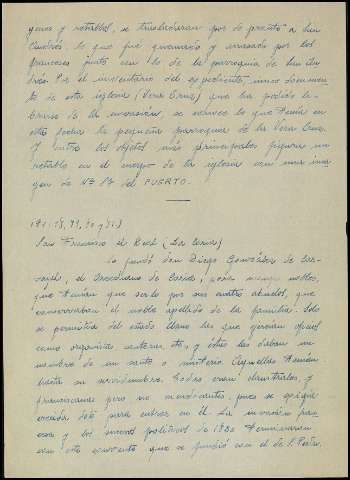 genes y retablos, se trasladaron por de pronto a San
Andrés, lo que fue quemado y arrasado por los
franceses junto con lo de la parroquia de San An-
drés. Por el inventario del expediente, único documen-
to de esta iglesia (Vera Cruz) que ha podido li-
brarse de la invasión, se conoce lo que tenía en
esta fecha la pequeña parroquia de la Vera Cruz.
Y entre los objetos más principales figura un
retablo en el cuerpo de la iglesia con una ima
gen de Nª Sª del PUERTO.
San Francisco el Real (La Coria)
Lo fundó don Diego González de Car-
vajal, el Arcediano de Coria, para monjas nobles,
que tenían que serlo por sus cuatro abuelos, que
conservaban el noble apellido de la familia. Solo
se permitía del estado llano las que ejercían oficios
como organista cantoras etc y a estas las daban un
nombre de un santo o misterio. Aquellas tenían
hasta su servidumbre. Todas eran claustrales y
franciscanas pero no mendicantes, pues se exigía
crecida dote para entrar en él. La invasión fran
cesa y los sucesos políticos de 1830 terminaron
con este convento que se fundió con el de S. Pedro.